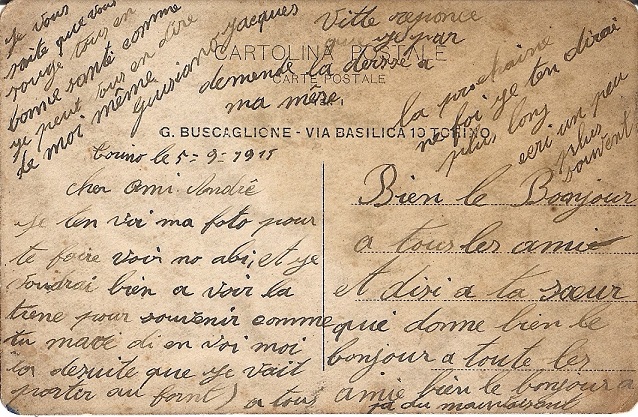 CARTOLINA POSTALE
CARTE POSTALE
G. BUSCAGLIONE - VIA BASILICA 10 TORINO
Torino le 5-9-1915
Cher Ami André
Je ten voi ma foto pour
te faire voir no abi, et ye
voudrai bien a voir la
tiene pour souvenir comme
tu mate di en voi moi
la dezuite que ye vait
porter au
Bien le Bonjour
a tous les amie
et dizi a ta sœur
qui donne bien le
bonjour a toute les
a tous amie bien le bonjour a
Je vous
saite que vous
rouge tous en
bonne santé comme
ye peut tous en dire
de moi même
Jacques
Vitte reponce
ye par
demende la
ma mère.
la prochaine
foi ye ten dirai
plus long
ecri un peu
plus
souvent